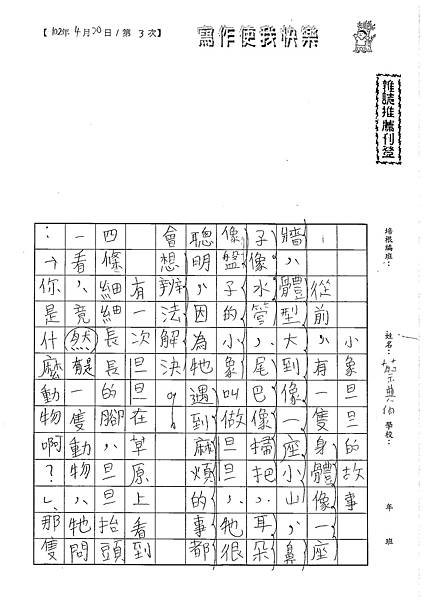 【102年4月20日/第3次】
寫作使我快樂
雜誌推薦刊登
培根編班：
姓名：
學校：
年
班
小象旦旦的故事
從前，有一隻身體像一座
牆，體型大到像一座小山，鼻
子像水管，尾巴像掃把，耳朵
像盤子的小象叫做旦旦，牠很
聰明，因為牠遇到麻煩的事都
會想辦法解決。
有一次旦旦在草原上看到
四條細細長長的腳，旦旦抬頭
一看，竟然是一隻動物，牠問
：「你是什麼動物啊？」那隻